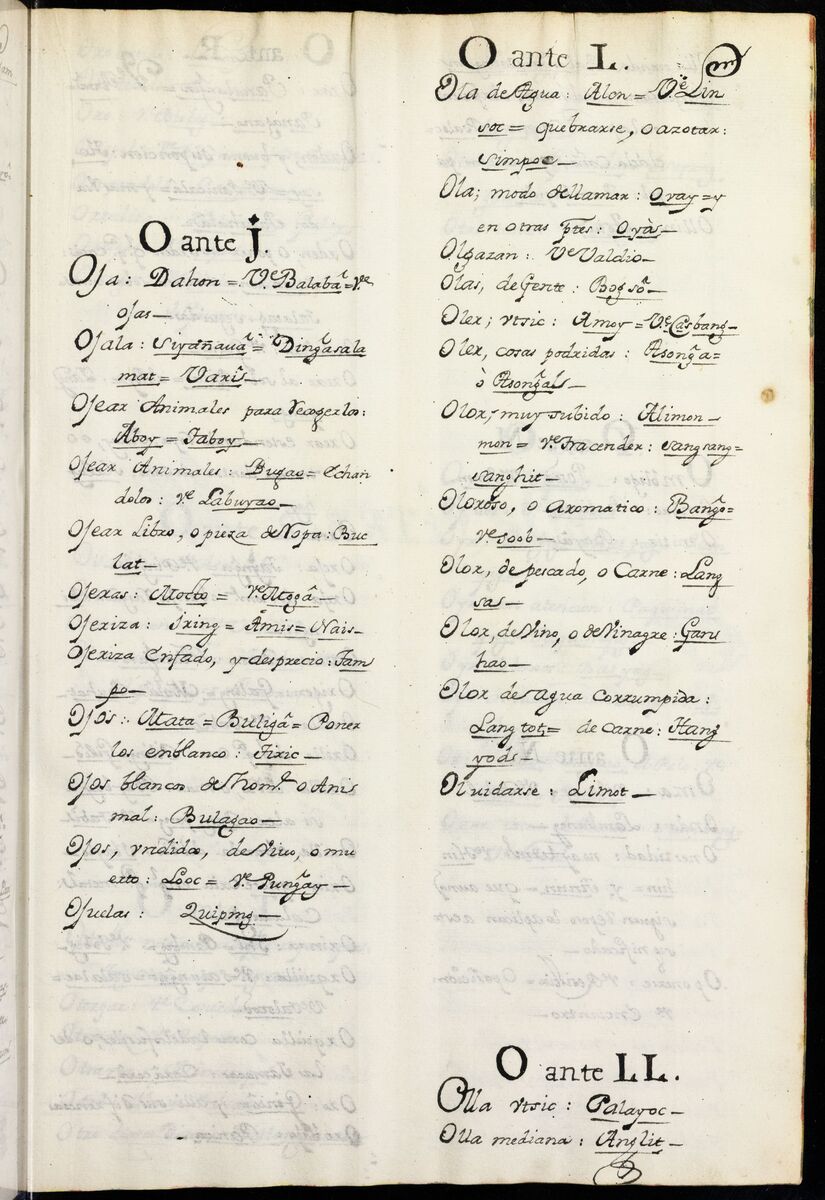 O ante j.
Oja: Dahon = Ve Balabâ = Ve
ojas—
Ojala: = Dingãsala
mat = Varis—
Ojear Animales para recogerlos:
Aboy = Taboy—
Ojear, Animales: Bugao = echan
dolos: ve Labuyao—
Ojear Libro, o pieza de Ropa: Buc
lat—
Ojeras: = ve
Ojeriza: Iring = Amis = Nais—
Ojeriza enfado, y desprecio: Tam
po—
Ojos: Mata = Buligâ = Poner
los enblanco: Tixic—
Ojos blancos de hom.e o Ani
mal: Bulagao—
Ojos, vndidos, de vivo, o mu
erto: Looc = ve Pungãy—
Ojuelas: Quiping—
O ante L.
Ola de Agua: Alon = Ve Lin
soc = quebrarse, o azotar:
Simpoc—
Ola; modo de llamar: Ovay = y
en otras ptes: Oyàs—
Olgazan: Ve Valdio—
Olas, de Gente: Bogsô—
Oler; vtsic: Amoy = Ve Casbang—
Oler, cosas podridas: Asongâ =
ò Asongâs—
Olor, muy subido: Alimon—
mon = ve Tracender: sangsang =
sanghit—
Oloroso, o Aromatico: Bangõ =
ve soob—
Olor, de pescado, o Carne: Lang
sas—
Olor, de Vino, o de Vinagre: Garu
hao—
Olor de agua corrumpida:
Lang tot = de carne: Hang
yods—
Oluidarse: Limot—
O ante LL.
Olla vtsic: Palayoc—
Olla mediana: Anglit—